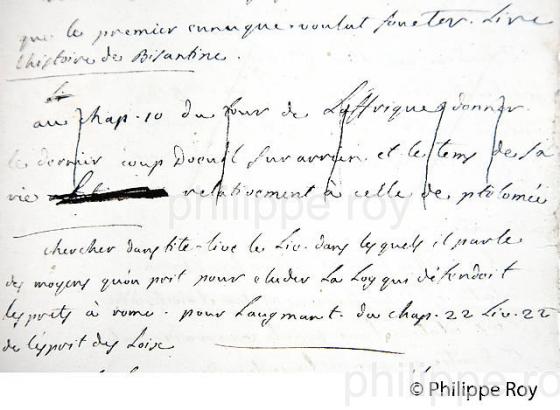 que le premier eunuque voulut foueter. Lire
l'histoire de Bisantine.
au chap. 10 du jour de L'affrique donner
le dernier coup Doeuil sur arrien et le tems de sa
vie relativement à celle de ptolomée
chercher dans tite-live le Liv. dans lesquels il parle
des moyens qu'on prit pour eluder La Loy qui défendoit
les prets à rome. pour Laugmant. du chap. 22 Liv. 22
de l'esprit des Loix
philippe roy
philippe roy
© Philippe Roy